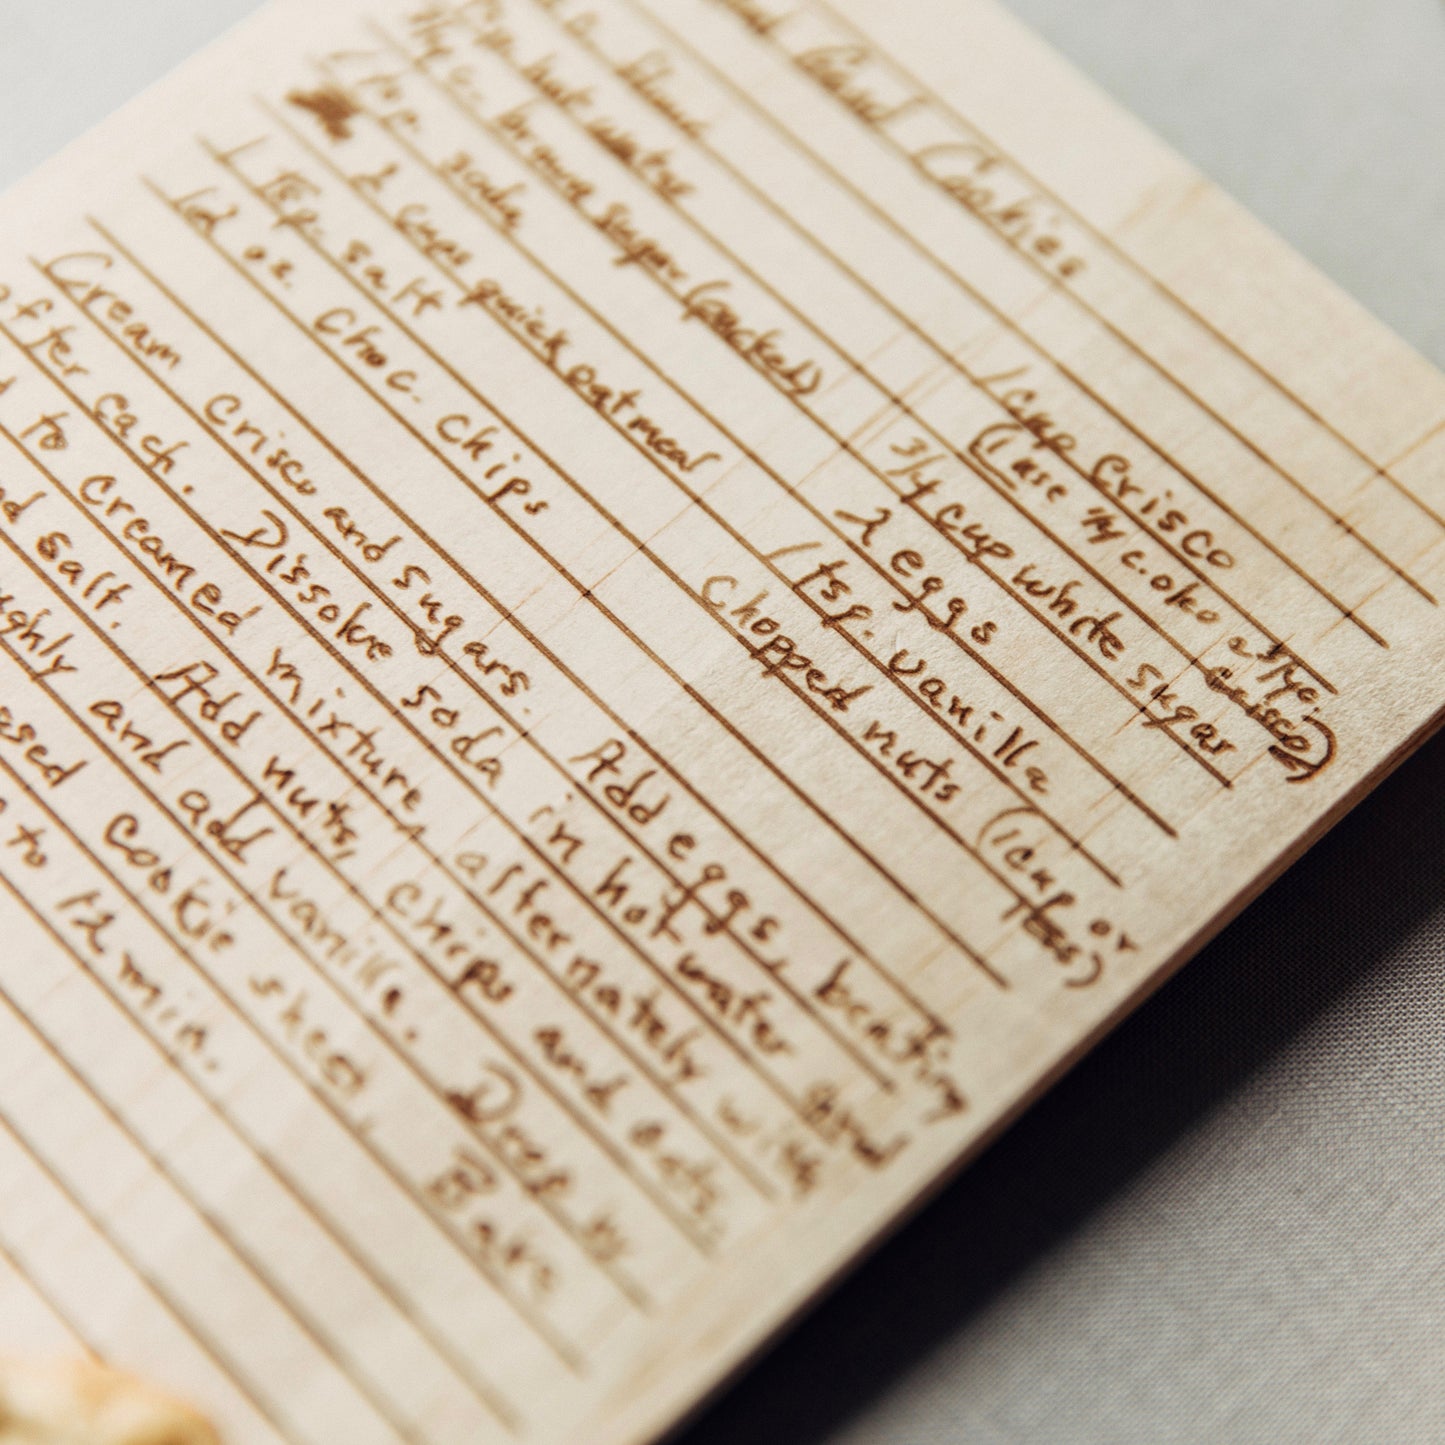 Card Cookies
c. flour 1 cup Crisco
hot water (I use 1/4 c. oleo + 3/4 c. Crisco)
c. brown sugar (packed) 3/4 cup white sugar
1 tsp. soda 2 eggs
2 cups quick oatmeal 1 tsp. vanilla
1 tsp. salt Chopped nuts (1 cup or less)
12 oz. Choc. Chips
Cream Crisco and sugars. Add eggs, beating
after each. Dissolve soda in hot water and
to creamed mixture, alternately with
salt. Add nuts, chips and oats,
and add vanilla. Drop by
cookie sheet. Bake
to 12 min.